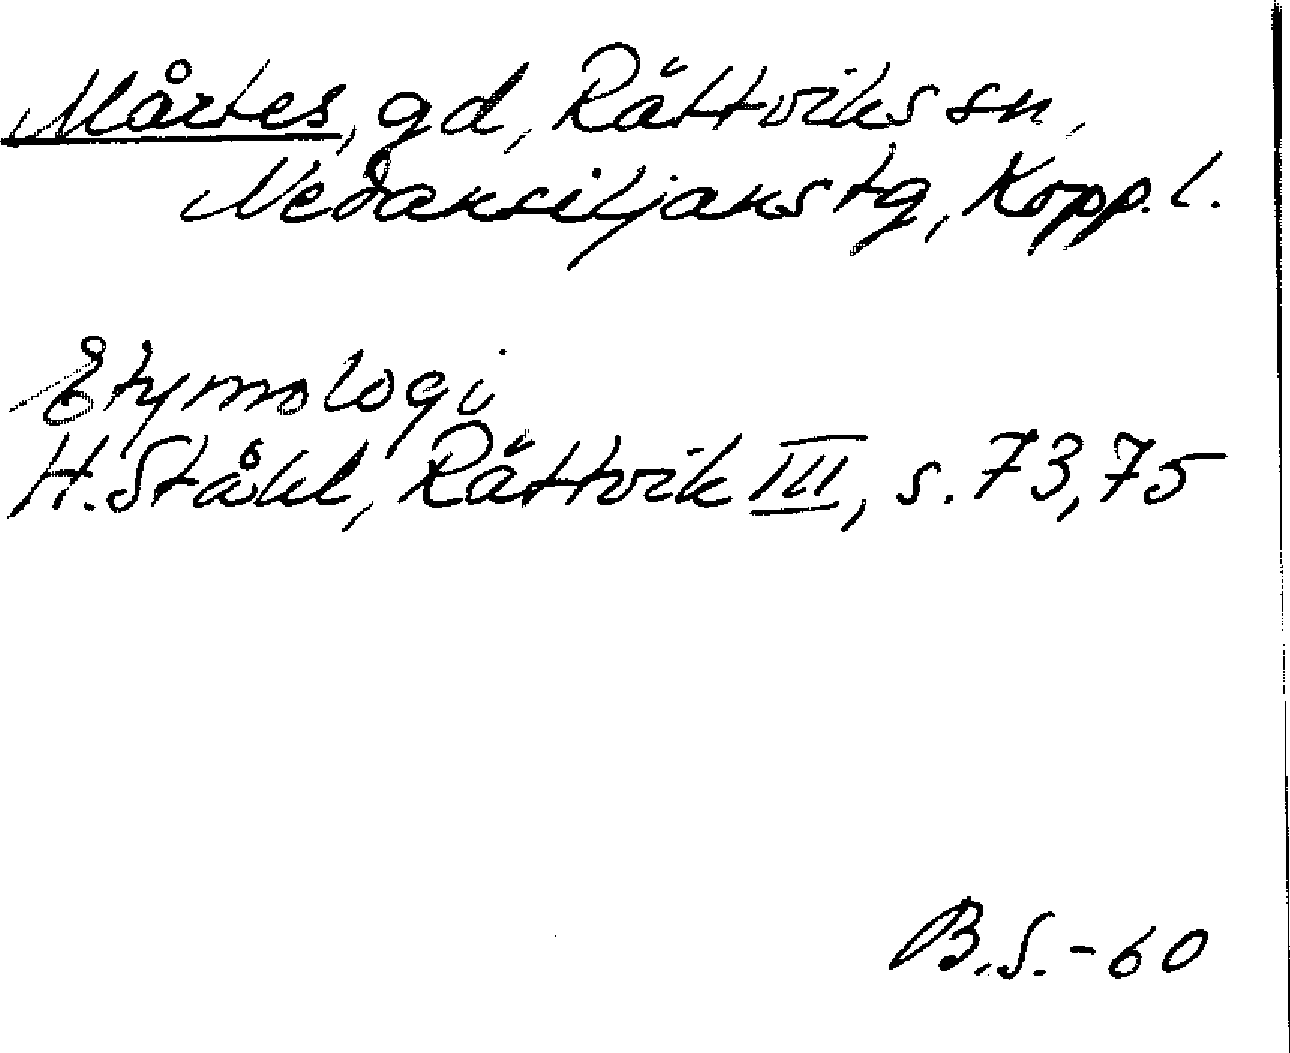 Mårtes, gd, Rättviks sn,
Nedansiljans tg, Kopp. l.
Etymologi
H. Ståhl, Rättvik III, s. 73, 75
B.S. - 60